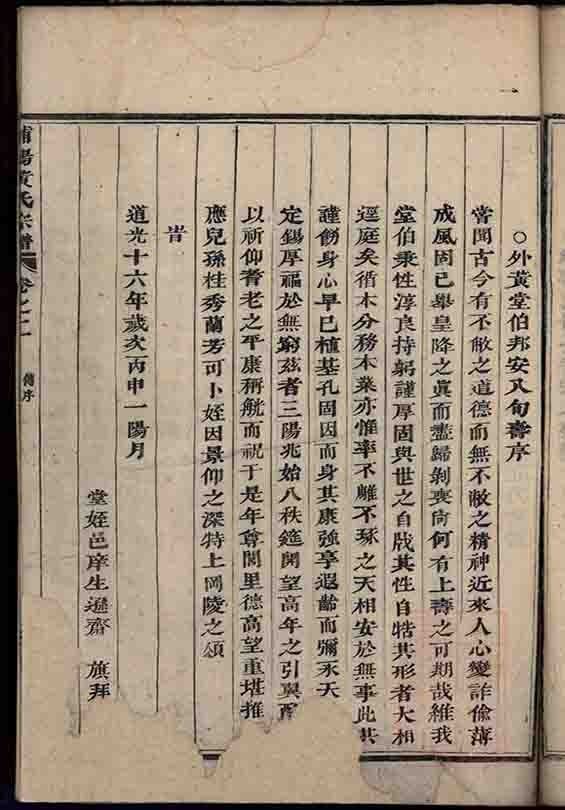 ○外黃堂伯邦安八旬壽序
嘗聞古今有不敝之道德而無不敝之精神近來人心變詐偷薄
成風固已舉皇降之眞而盡歸剝喪尙何有上壽之可期哉維我
堂伯秉性淳良持躬謹厚固與世之自戕其性自牿其形者大相
逕庭矣循木分務木業亦惟率不雕不琢之天相安於無事此其
謹飭身心早已植基孔固因而身其康強享遐齡而彌永天
定錫厚福於無窮茲者三陽兆始八秩筵開望高年之引翼
以祈仰耆老之平康稱觥而祝于是年尊閭里德高望重堪推
應兒孫桂秀蘭芳可卜姪因景仰之深特上岡陵之頌
旹
道光十六年歲次丙申一陽月
堂姪邑庠生遜齋 旗拜
浦陽黃氏宗譜 卷之二 傳序